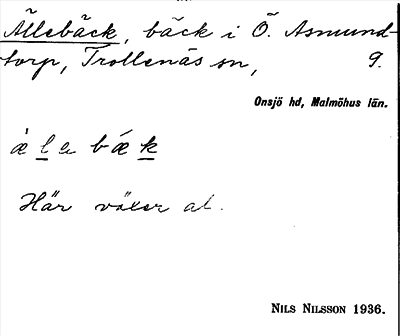 Ällebäck, bäck i Ö. Asmund-
torp, Trollenäs sn, 9.
Onsjö hd, Malmöhus län.
æ̀ l e b ǽ k
Här växer al.
NILS NILSSON 1936.